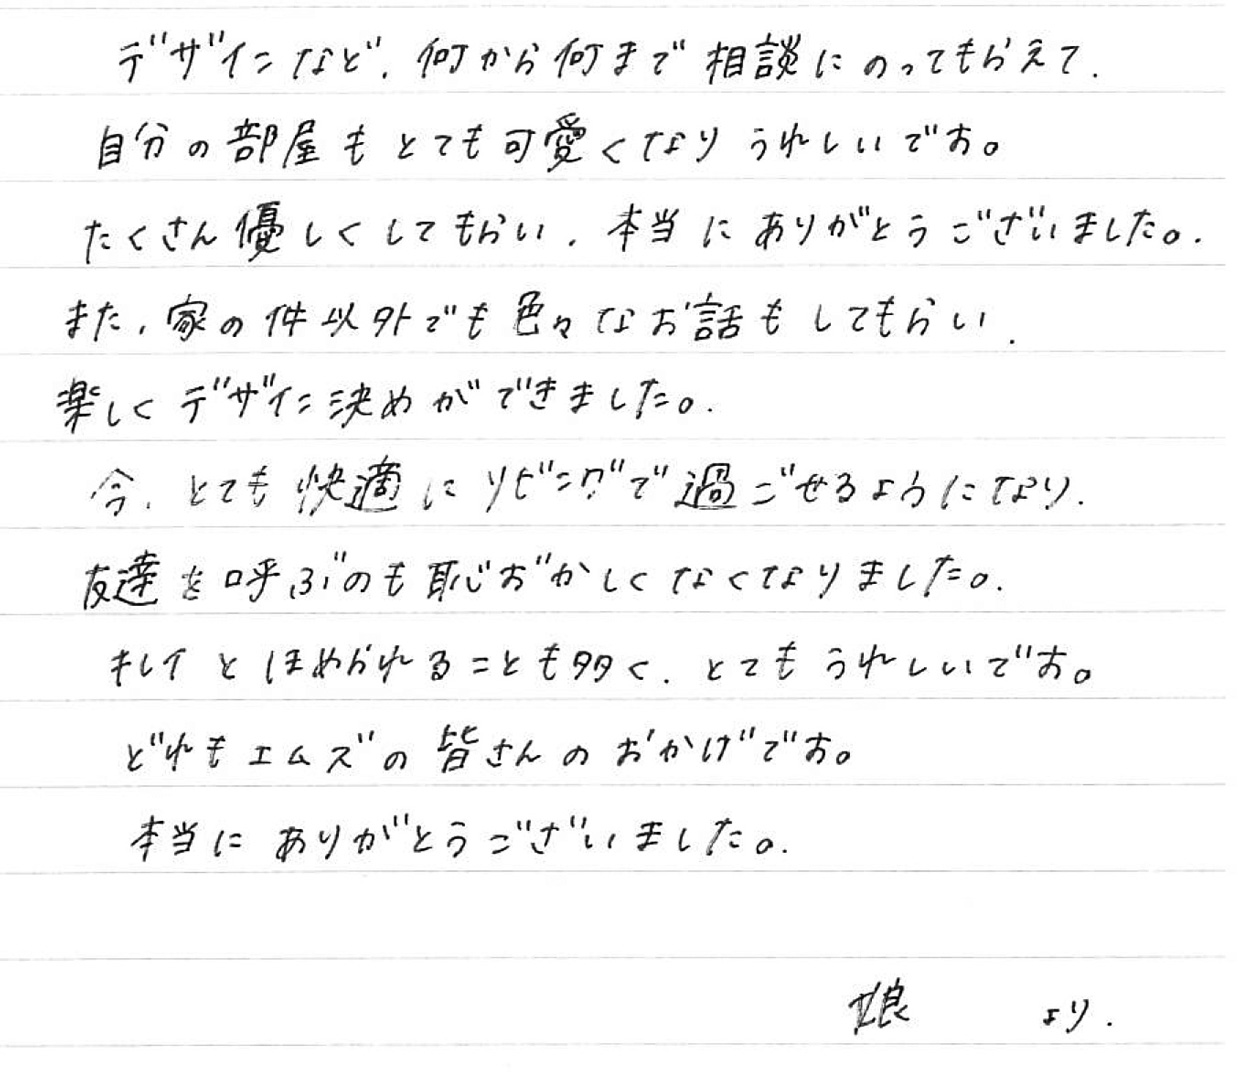 デザインなど、何から何まで相談にのってもらえて、
自分の部屋もとても可愛くなりうれしいです。
たくさん優しくしてもらい、本当にありがとうございました。
また、家の件以外でも色々なお話もしてもらい、
楽しくデザイン決めができました。
今、とても快適にリビングで過ごせるようになり、
友達を呼ぶのも恥ずかしくなくなりました。
キレイとほめられることも多く、とてもうれしいです。
どれもエムズの皆さんのおかげです。
本当にありがとうございました。
娘 より.